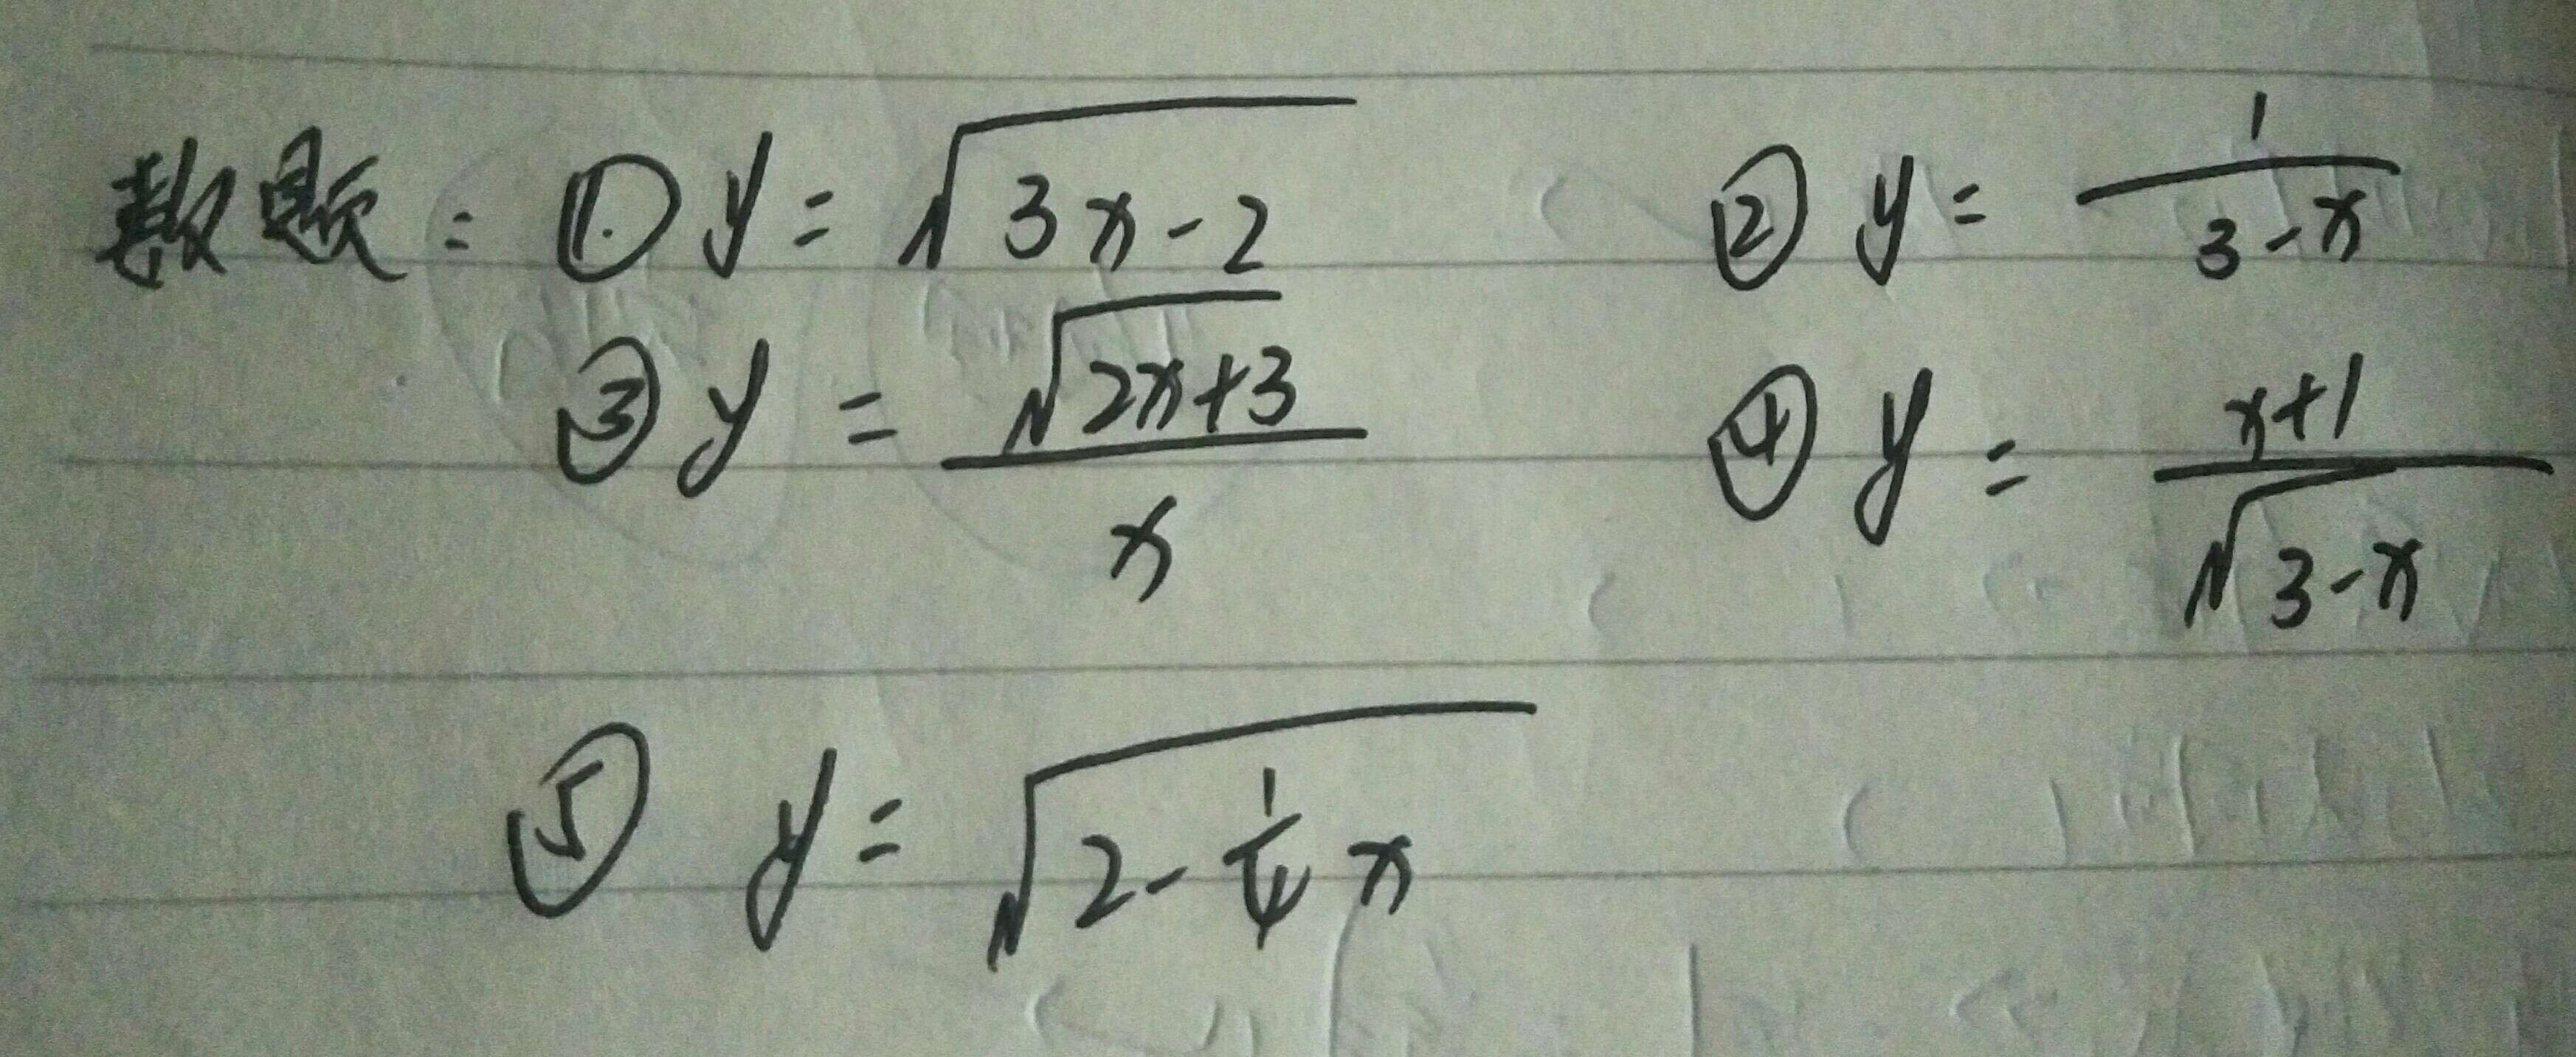 数题：① y = √(3x-2)  ② y = 1/(3-x)
③ y = √(2x+3)/x  ④ y = (x+1)/√(3-x)
⑤ y = √(2-¼x)